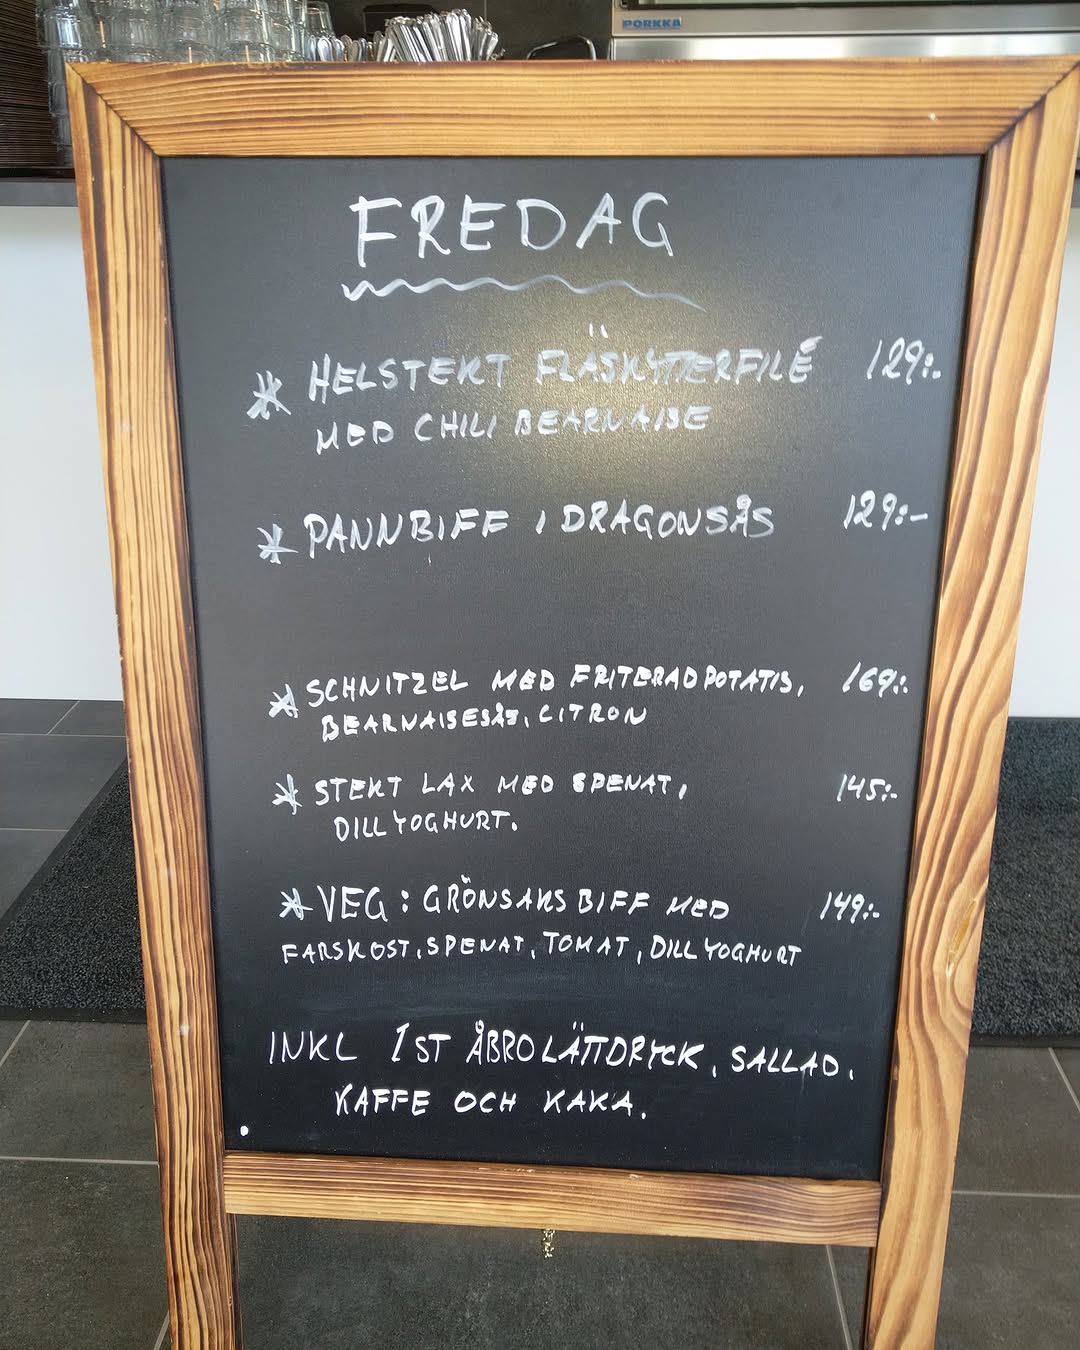 PORKKA
FREDAG
* HELSTEKT FLÄSKYTTERFILÉ 129:-
MED CHILI BEARNAISE
* PANNBIFF I DRAGONSÅS 129:-
* SCHNITZEL MED FRITERAD POTATIS, 169:-
BEARNAISESÅS, CITRON
* STEKT LAX MED SPENAT, 145:-
DILLYOGHURT.
* VEG: GRÖNSAKSBIFF MED 149:-
FÄRSKOST, SPENAT, TOMAT, DILLYOGHURT
INKL 1ST ÅBRO LÄTTDRYCK, SALLAD,
KAFFE OCH KAKA.